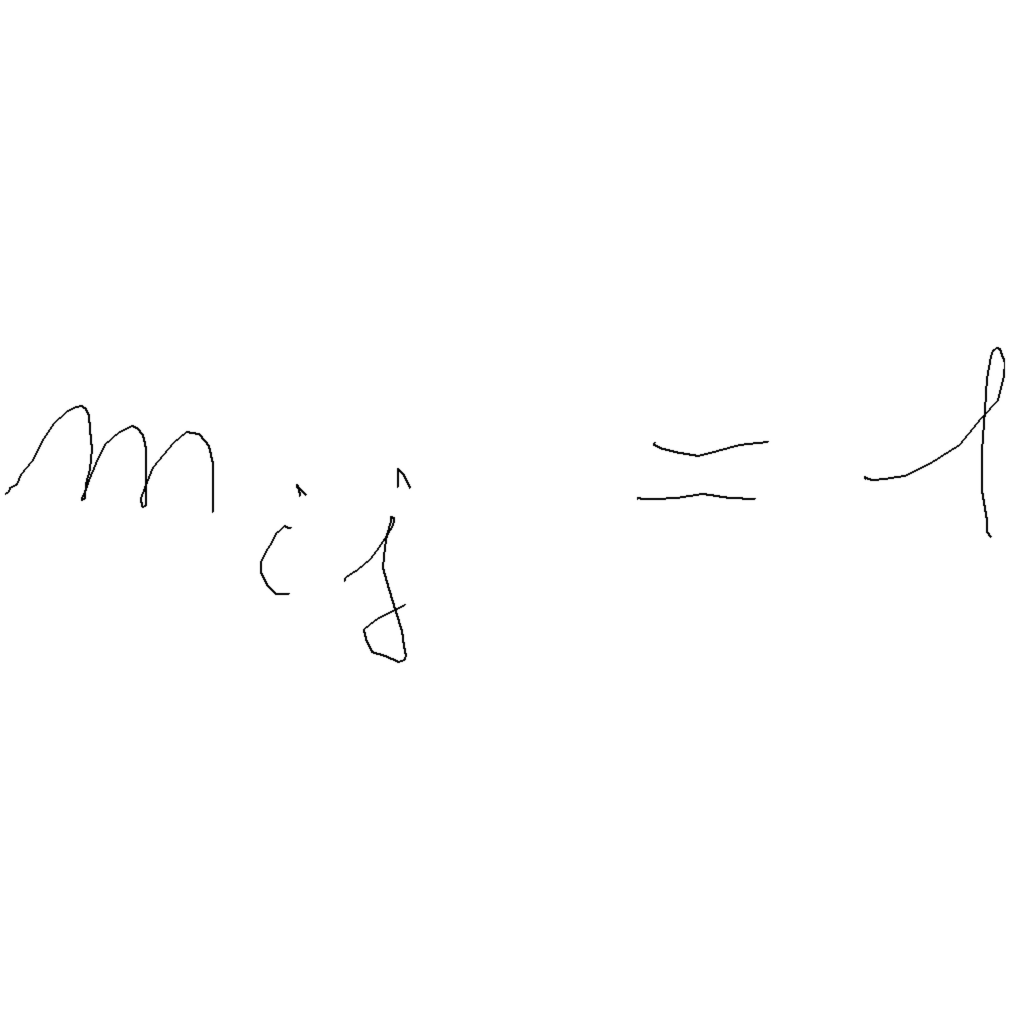 m_{ij} = 1